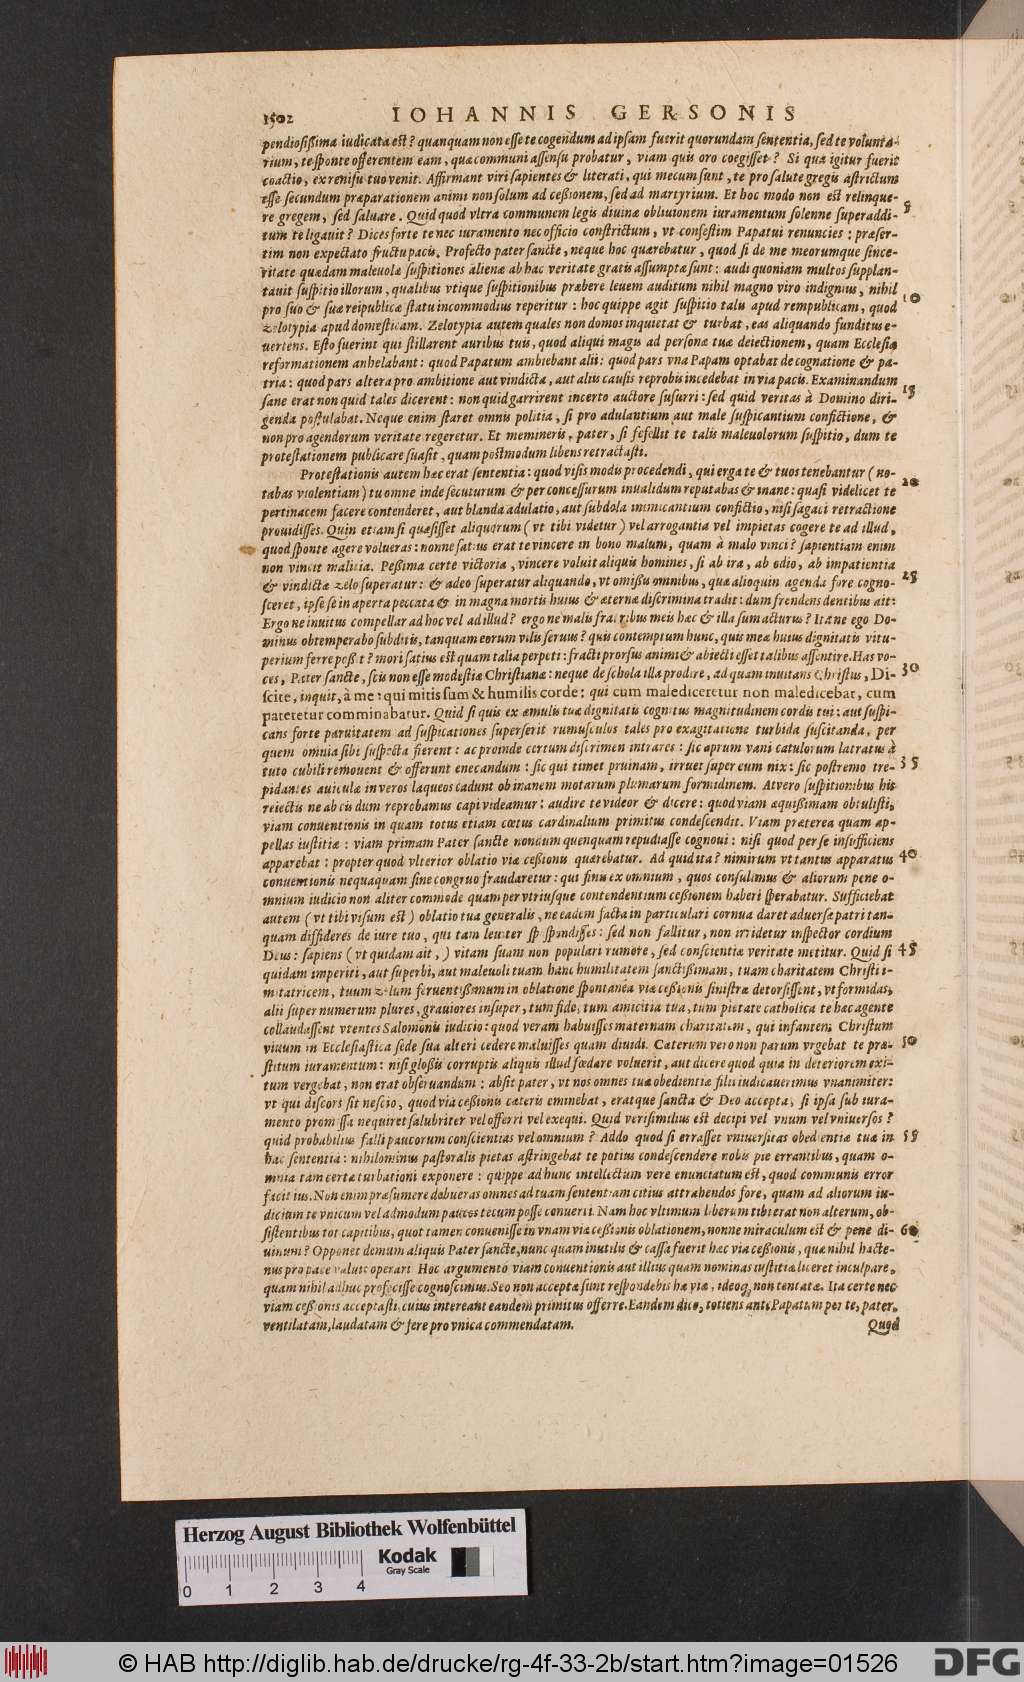 1502 IOHANNIS GERSONIS
pendiosissima iudicata est? quanquam non esse te cogendum ad ipsam fuerit quorundam sententia, sed te volunta-
rium, te sponte offerentem eam, qua communi assensu probatur, viam quis oro coegisset? Si qua igitur fuerit
coactio, ex renisu tuo venit. Affirmant viri sapientes & literati, qui mecum sunt, te pro salute gregis astrictum
esse secundum præparationem animi non solum ad cessionem, sed ad martyrium. Et hoc modo non est relinque-
re gregem, sed saluare. Quid quod vltra communem legis diuinæ obliuionem iuramentum solenne superaddi- 5
tum te ligauit? Dices forte te nec iuramento nec officio constrictum, vt confestim Papatui renuncies: præser-
tim non expectato fructu pacis. Profecto pater sancte, neque hoc quærebatur, quod si de me meorumque since-
ritate quædam maleuolæ suspitiones alienæ ab hac veritate gratis assumptæ sunt: audi quoniam multos supplan-
tauit suspitio illorum, qualibus vtique suspitionibus præbere leuem auditum nihil magno viro indignius, nihil
pro suo & suæ reipublicæ statu incommodius reperitur: hoc quippe agit suspitio talis apud rempublicam, quod 10
zelotypia apud domesticam. Zelotypia autem quales non domos inquietat & turbat, eas aliquando funditus e-
uertens. Esto fuerint qui stillarent auribus tuis, quod aliqui magis ad personæ tuæ deiectionem, quam Ecclesiæ
reformationem anhelabant: quod Papatum ambiebant alii: quod pars vna Papam optabat de cognatione & pa-
tria: quod pars altera pro ambitione aut vindicta, aut aliis causis reprobis incedebat in via pacis. Examinandum
sane erat non quid tales dicerent: non quid garrirent incerto auctore susurri: sed quid veritas à Domino diri- 15
genda postulabat. Neque enim staret omnis politia, si pro adulantium aut male suspicantium confictione, &
non pro agendorum veritate regeretur. Et memineris, pater, si fefellit te talis maleuolorum suspitio, dum te
protestationem publicare suasit, quam postmodum libens retractasti.
Protestationis autem hæc erat sententia: quod visis modis procedendi, qui erga te & tuos tenebantur (no-
tabas violentiam) tu omne inde secuturum & per concessurum inualidum reputabas & inane: quasi videlicet te 20
pertinacem facere contenderet, aut blanda adulatio, aut subdola inimicantium confictio, nisi sagaci retractione
prouidisses. Quin etiam si quæsisset aliquorum (vt tibi videtur) vel arrogantia vel impietas cogere te ad illud,
quod sponte agere volueras: nonne satius erat te vincere in bono malum, quam à malo vinci? sapientiam enim
non vincit malitia. Pessima certe victoria, vincere voluit aliquis homines, si ab ira, ab odio, ab impatientia
& vindictæ zelo superatur: & adeo superatur aliquando, vt omissis omnibus, quæ alioquin agenda fore cogno- 25
sceret, ipse se in aperta peccata & in magna mortis huius & æternæ discrimina tradit: dum frendens dentibus ait:
Ergo ne inuitus compellar ad hoc vel ad illud? ergo ne malis fratribus meis hæc & illa sum acturus? Itane ego Do-
minus obtemperabo subditis, tanquam eorum vilis seruus? quis contemptum hunc, quis meæ huius dignitatis vitu-
perium ferre possit? mori satius est quam talia perpeti: fracti prorsus animi & abiecti esset talibus assentire. Has vo-
ces, Pater sancte, scis non esse modestiæ Christianæ: neque de schola illa prodire, ad quam inuitans Christus, Di- 30
scite, inquit, à me: qui mitis sum & humilis corde: qui cum malediceretur non maledicebat, cum
pateretur comminabatur. Quid si quis ex æmulis tuæ dignitatis cognitus magnitudinem cordis tui: aut suspi-
cans forte paruitatem ad suspicationes superserit rumusculos tales pro exagitatione turbida suscitanda, per
quem omnia tibi suspecta fierent: ac proinde certum discrimen intrares: sic aprum vani catulorum latratus à
tuto cubili remouent & offerunt enecandum: sic qui timet pruinam, irruet super eum nix: sic postremo tre- 35
pidantes auiculæ in veros laqueos cadunt ob inanem motarum plumarum formidinem. At vero suspitionibus his
reiectis ne abs dum reprobamus capi videamur: audire te videor & dicere: quod viam æquissimam obtulisti,
viam conuentionis in quam totus etiam cœtus cardinalium primitus condescendit. Viam præterea quam ap-
pellas iustitiæ: viam primam Pater sancte nondum quenquam repudiasse cognoui: nisi quod per se insufficiens
apparebat: propter quod vlterior oblatio viæ cessionis quærebatur. Ad quid ita? nimirum vt tantus apparatus 40
conuentionis nequaquam sine congruo fraudaretur: qui finis ex omnium, quos consulimus & aliorum pene o-
mnium iudicio non aliter commode quam per vtriusque contendentium cessionem haberi sperabatur. Sufficiebat
autem (vt tibi visum est) oblatio tua generalis, ne eadem facta in particulari cornua daret aduersæ patri tan-
quam diffideres de iure tuo, qui tam leuiter spospondisses: sed non fallitur, non irridetur inspector cordium
Deus: sapiens (vt quidam ait,) vitam suam non populari rumore, sed conscientiæ veritate metitur. Quid si 45
quidam imperiti, aut superbi, aut maleuoli tuam hanc humilitatem sanctissimam, tuam charitatem Christi i-
mitatricem, tuum zelum feruentissimum in oblatione spontanea viæ cessionis sinistre detorsissent, vt formidas,
alii super numerum plures, grauiores insuper, tum fide, tum amicitia tua, tum pietate catholica te hæc agente
collaudassent vtentes Salomonis iudicio: quod veram habuisses maternam charitatem, qui infantem Christum
viuum in Ecclesiastica sede sua alteri cedere maluisses quam diuidi. Cæterum vero non parum vrgebat te præ- 50
stitum iuramentum: nisi glossis corruptis aliquis illud fœdare voluerit, aut dicere quod quia in deteriorem exi-
tum vergebat, non erat obseruandum: absit pater, vt nos omnes tuæ obedientiæ filii iudicauerimus vnanimiter:
vt qui discors sit nescio, quod via cessionis cæteris eminebat, eratque sancta & Deo accepta, si ipsa sub iura-
mento promissa nequiret salubriter vel offerri vel exequi. Quid verisimilius est decipi vel vnum vel vniuersos?
quid probabilius falli paucorum conscientias vel omnium? Addo quod si errasset vniuersitas obedientiæ tuæ in 55
hac sententia: nihilominus pastoralis pietas astringebat te potius condescendere nobis pie errantibus, quam o-
mnia tam certæ turbationi exponere: quippe ad hunc intellectum vere enunciatum est, quod communis error
facit ius. Non enim præsumere debueras omnes ad tuam sententiam citius attrahendos fore, quam ad aliorum iu-
dicium te vnicum vel admodum paucos tecum posse conuerti. Nam hoc vltimum liberum tibi erat non alterum, ob-
sistentibus tot capitibus, quot tamen conuenisse in vnam viæ cessionis oblationem, nonne miraculum est & pene di- 60
uinum? Opponet demum aliquis Pater sancte, nunc quam inutilis & cassa fuerit hæc via cessionis, quæ nihil hacte-
nus pro pace valuit operari. Hoc argumento viam conuentionis aut illius quam nominas iustitiæ liceret inculpare,
quam nihil adhuc profecisse cognoscimus. Sed non acceptæ sunt respondebis hæ viæ, ideoq; non tentatæ. Ita certe nec
viam cessionis acceptasti, cuius intererat eandem primitus offerre. Eandem dico, toties ante Papatum per te, pater,
ventilatam, laudatam & fere pro vnica commendatam. Quod
Herzog August Bibliothek Wolfenbüttel
Kodak
Gray Scale
0 1 2 3 4
© HAB http://diglib.hab.de/drucke/rg-4f-33-2b/start.htm?image=01526
DFG